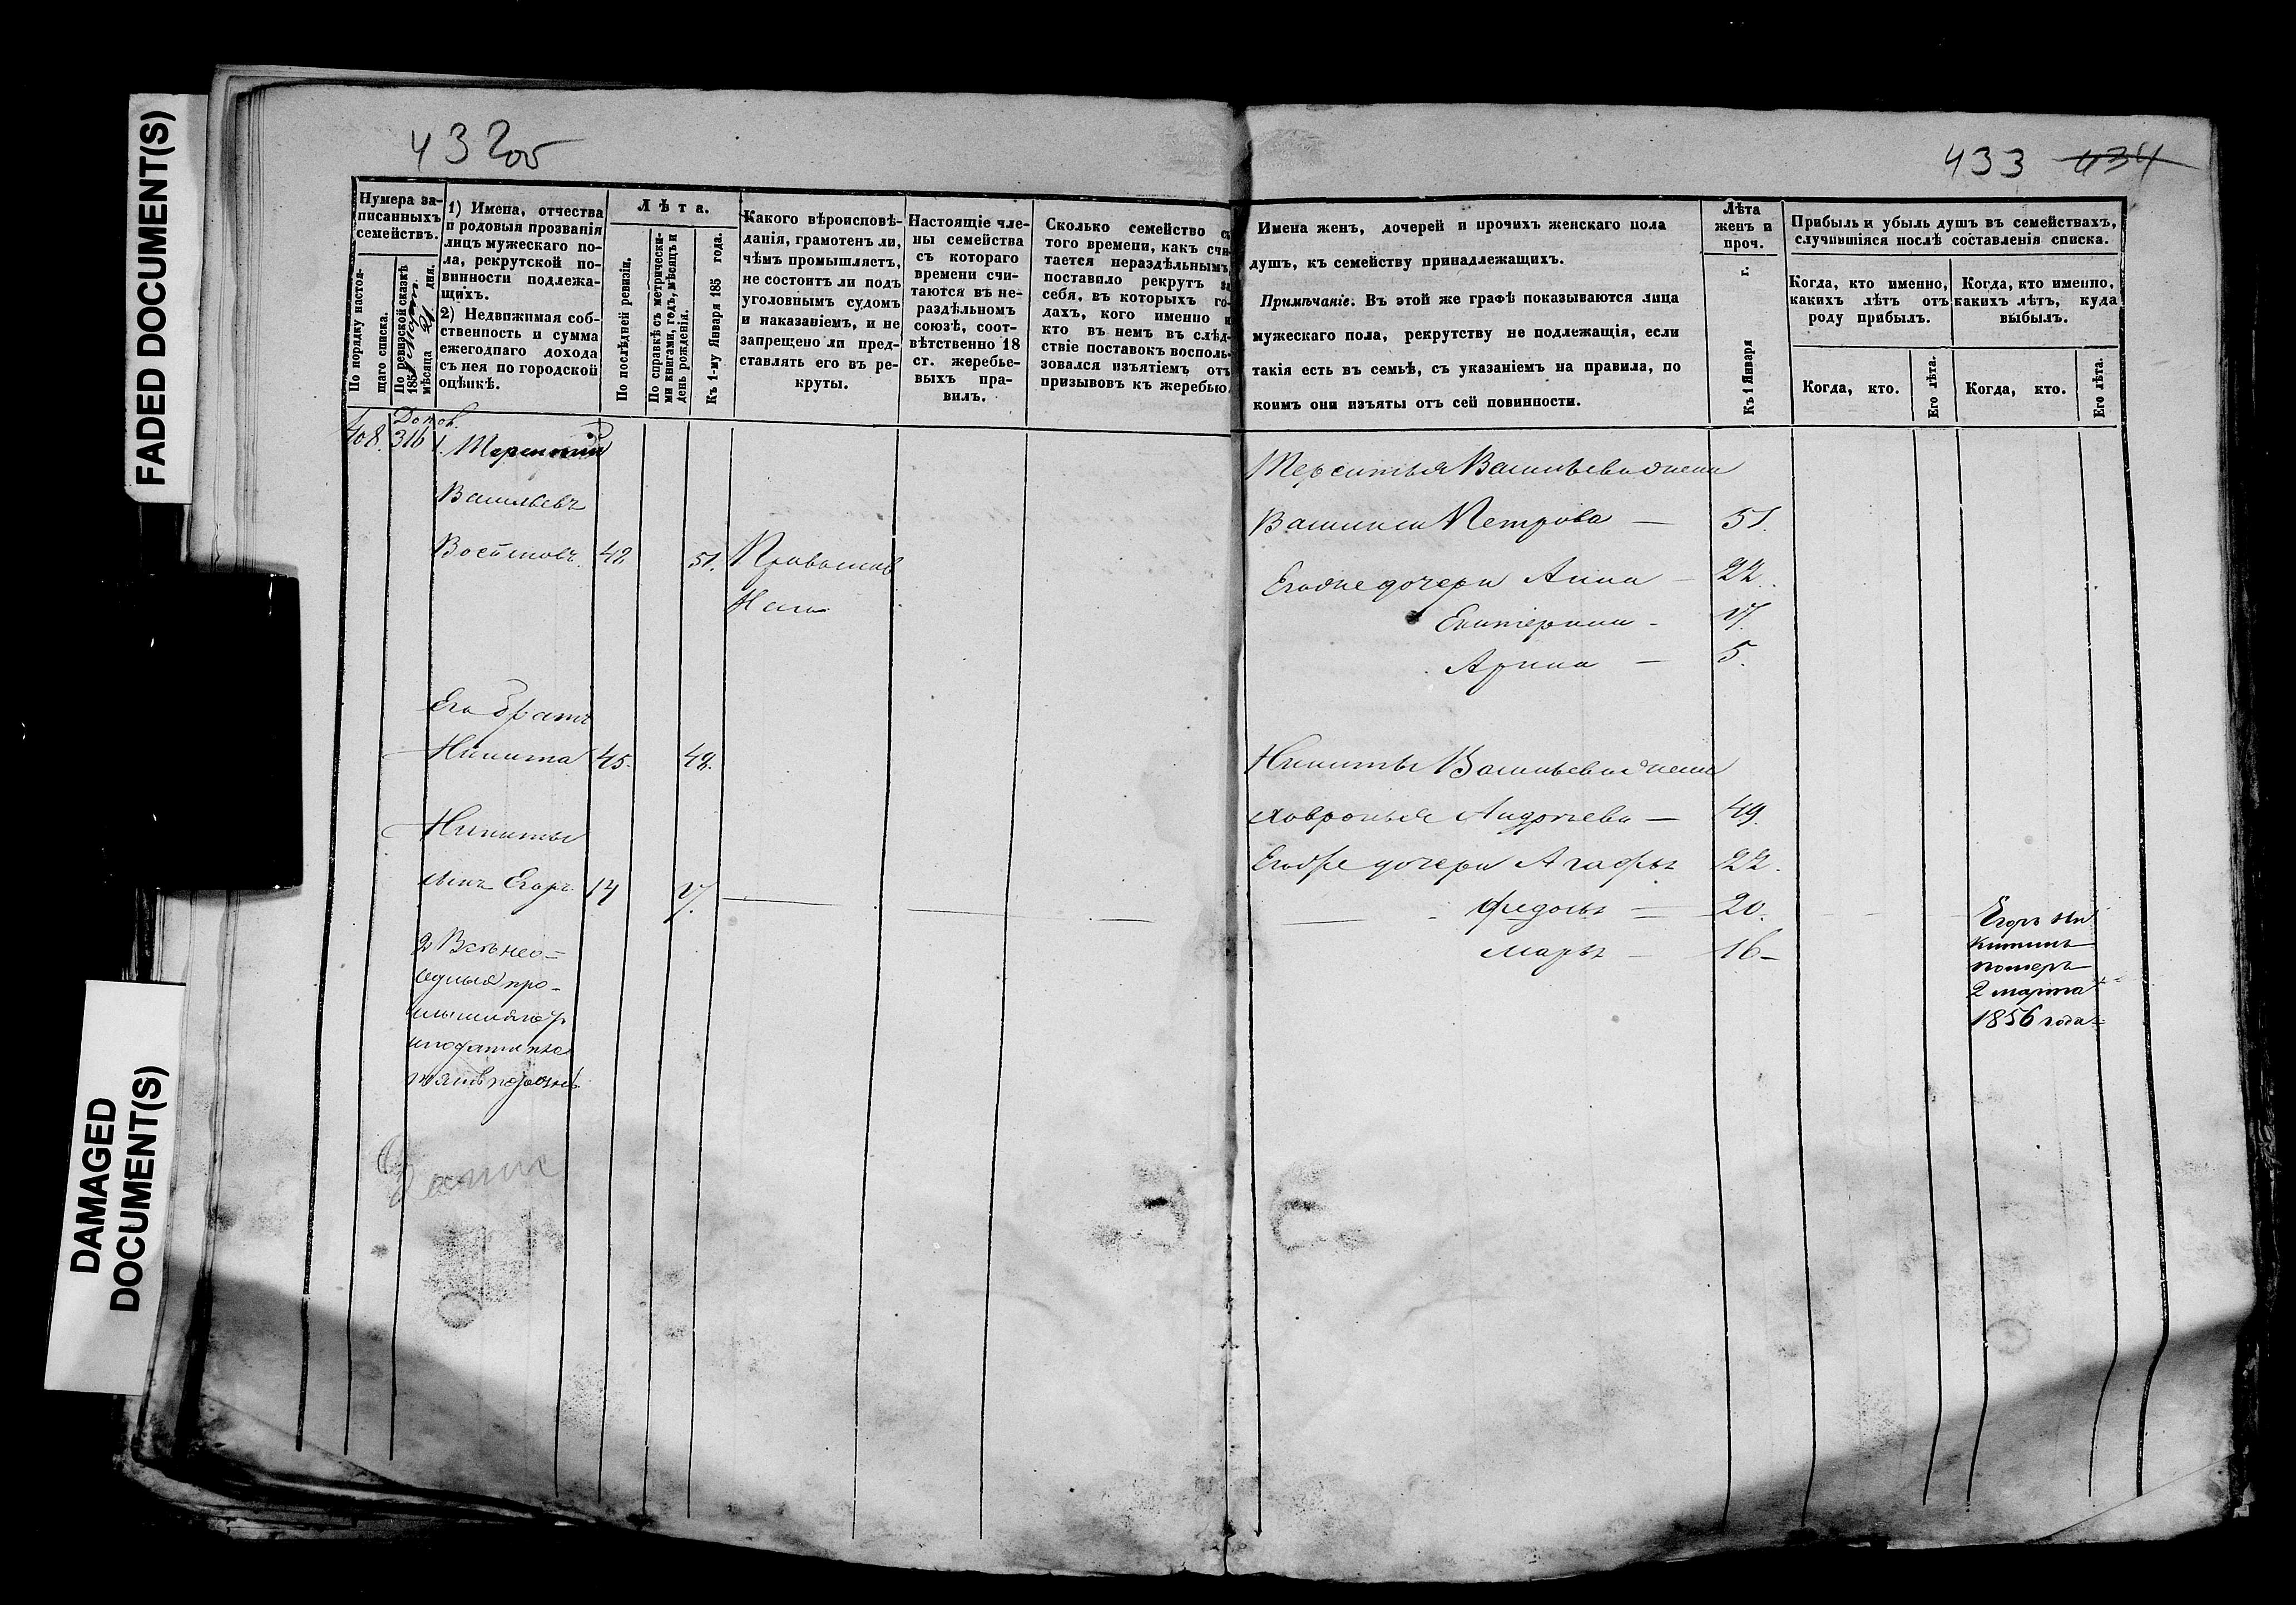 FADED DOCUMENT(S)
DAMAGED
DOCUMENT(S)
432об
Нумера за-
писанныхъ
семействъ.
По порядку настоя-
щаго списка.
По ревизской сказкѣ
185 мѣсяца 21 дня.
1) Имена, отчества
и родовыя прозванія
лицъ мужескаго по-
ла, рекрутской по-
винности подлежа-
щихъ.
2) Недвижимая соб-
ственность и сумма
ежегоднаго дохода
съ нея по городской
оцѣнкѣ.
Лѣта.
По послѣдней ревизіи.
По справкѣ съ метрически-
ми книгами, годъ, мѣсяцъ и
день рожденія.
Къ 1-му Января 185 года.
Какого вѣроисповѣ-
данія, грамотенъ ли,
чѣмъ промышляетъ,
не состоитъ ли подъ
уголовнымъ судомъ
и наказаніемъ, и не
запрещено ли пред-
ставлять его въ ре-
круты.
Настоящіе чле-
ны семейства
съ котораго
времени счи-
таются въ не-
раздѣльномъ
союзѣ, соот-
вѣтственно 18
ст. жеребье-
выхъ пра-
вилъ.
Сколько семейство съ
того времени, какъ счи-
тается нераздѣльнымъ,
поставило рекрутъ за
себя, въ которыхъ го-
дахъ, кого именно и
кто въ немъ въ слѣд-
ствіе поставокъ восполь-
зовался изъятіемъ отъ
призывовъ къ жеребью.
408. 316 1.
Васильевъ
42 51.
Его братъ
Никита 45. 48.
Никиты
сынъ Егоръ 14 17.
433 434
Имена женъ, дочерей и прочихъ женскаго пола
душъ, къ семейству принадлежащихъ.
Примѣчаніе. Въ этой же графѣ показываются лица
мужескаго пола, рекрутству не подлежащія, если
такія есть въ семьѣ, съ указаніемъ на правила, по
коимъ они изъяты отъ сей повинности.
Лѣта
женъ и
проч.
Къ 1 Января г.
Прибыль и убыль душъ въ семействахъ,
случившіяся послѣ составленія списка.
Когда, кто именно,
какихъ лѣтъ отъ
роду прибылъ.
Когда, кто именно,
какихъ лѣтъ, куда
выбылъ.
Когда, кто.
Его лѣта.
Когда, кто.
Его лѣта.
Васильева жена
Петрова — 51.
Егоже дочери Анна — 22.
Екатерина - 17.
Арина — 5.
Никиты Васильева жена
Ховронья Андреева — 49.
Егоже дочери Агафья 22.
Федосья 20.
Марья — 16 -
Егоръ Ни
китинъ
померъ
2 марта
1856 года